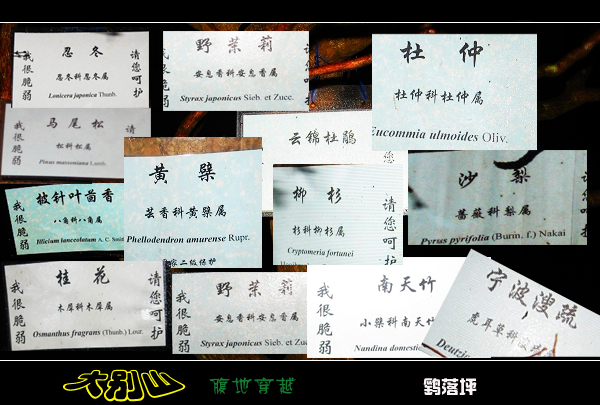 忍冬
忍冬科忍冬属
Lonicera japonica Thunb.
我很脆弱
请您呵护
野茉莉
安息香科安息香属
Styrax japonicus Sieb. et Zucc.
我很脆弱
请您呵护
杜仲
杜仲科杜仲属
Eucommia ulmoides Oliv.
马尾松
松科松属
Pinus massoniana Lamb.
我很脆弱
请
云锦杜鹃
您
黄檗
芸香科黄檗属
Phellodendron amurense Rupr.
家二级保护
柳杉
杉科柳杉属
Cryptomeria fortunei
请您呵护
沙梨
蔷薇科梨属
Pyrus pyrifolia (Burm. f.) Nakai
披针叶茴香
八角科八角属
Illicium lanceolatum A. C. Smith
我很脆弱
桂花
木犀科木犀属
Osmanthus fragrans (Thunb.) Lour.
我很脆弱
请您呵护
野茉莉
安息香科安息香属
Styrax japonicus Sieb. et Zucc.
我很脆弱
南天竹
小檗科南天竹
Nandina domestic
我很脆弱
宁波溲疏
虎耳草科溲疏
Deutzia
大别山
腹地穿越
鹞落坪